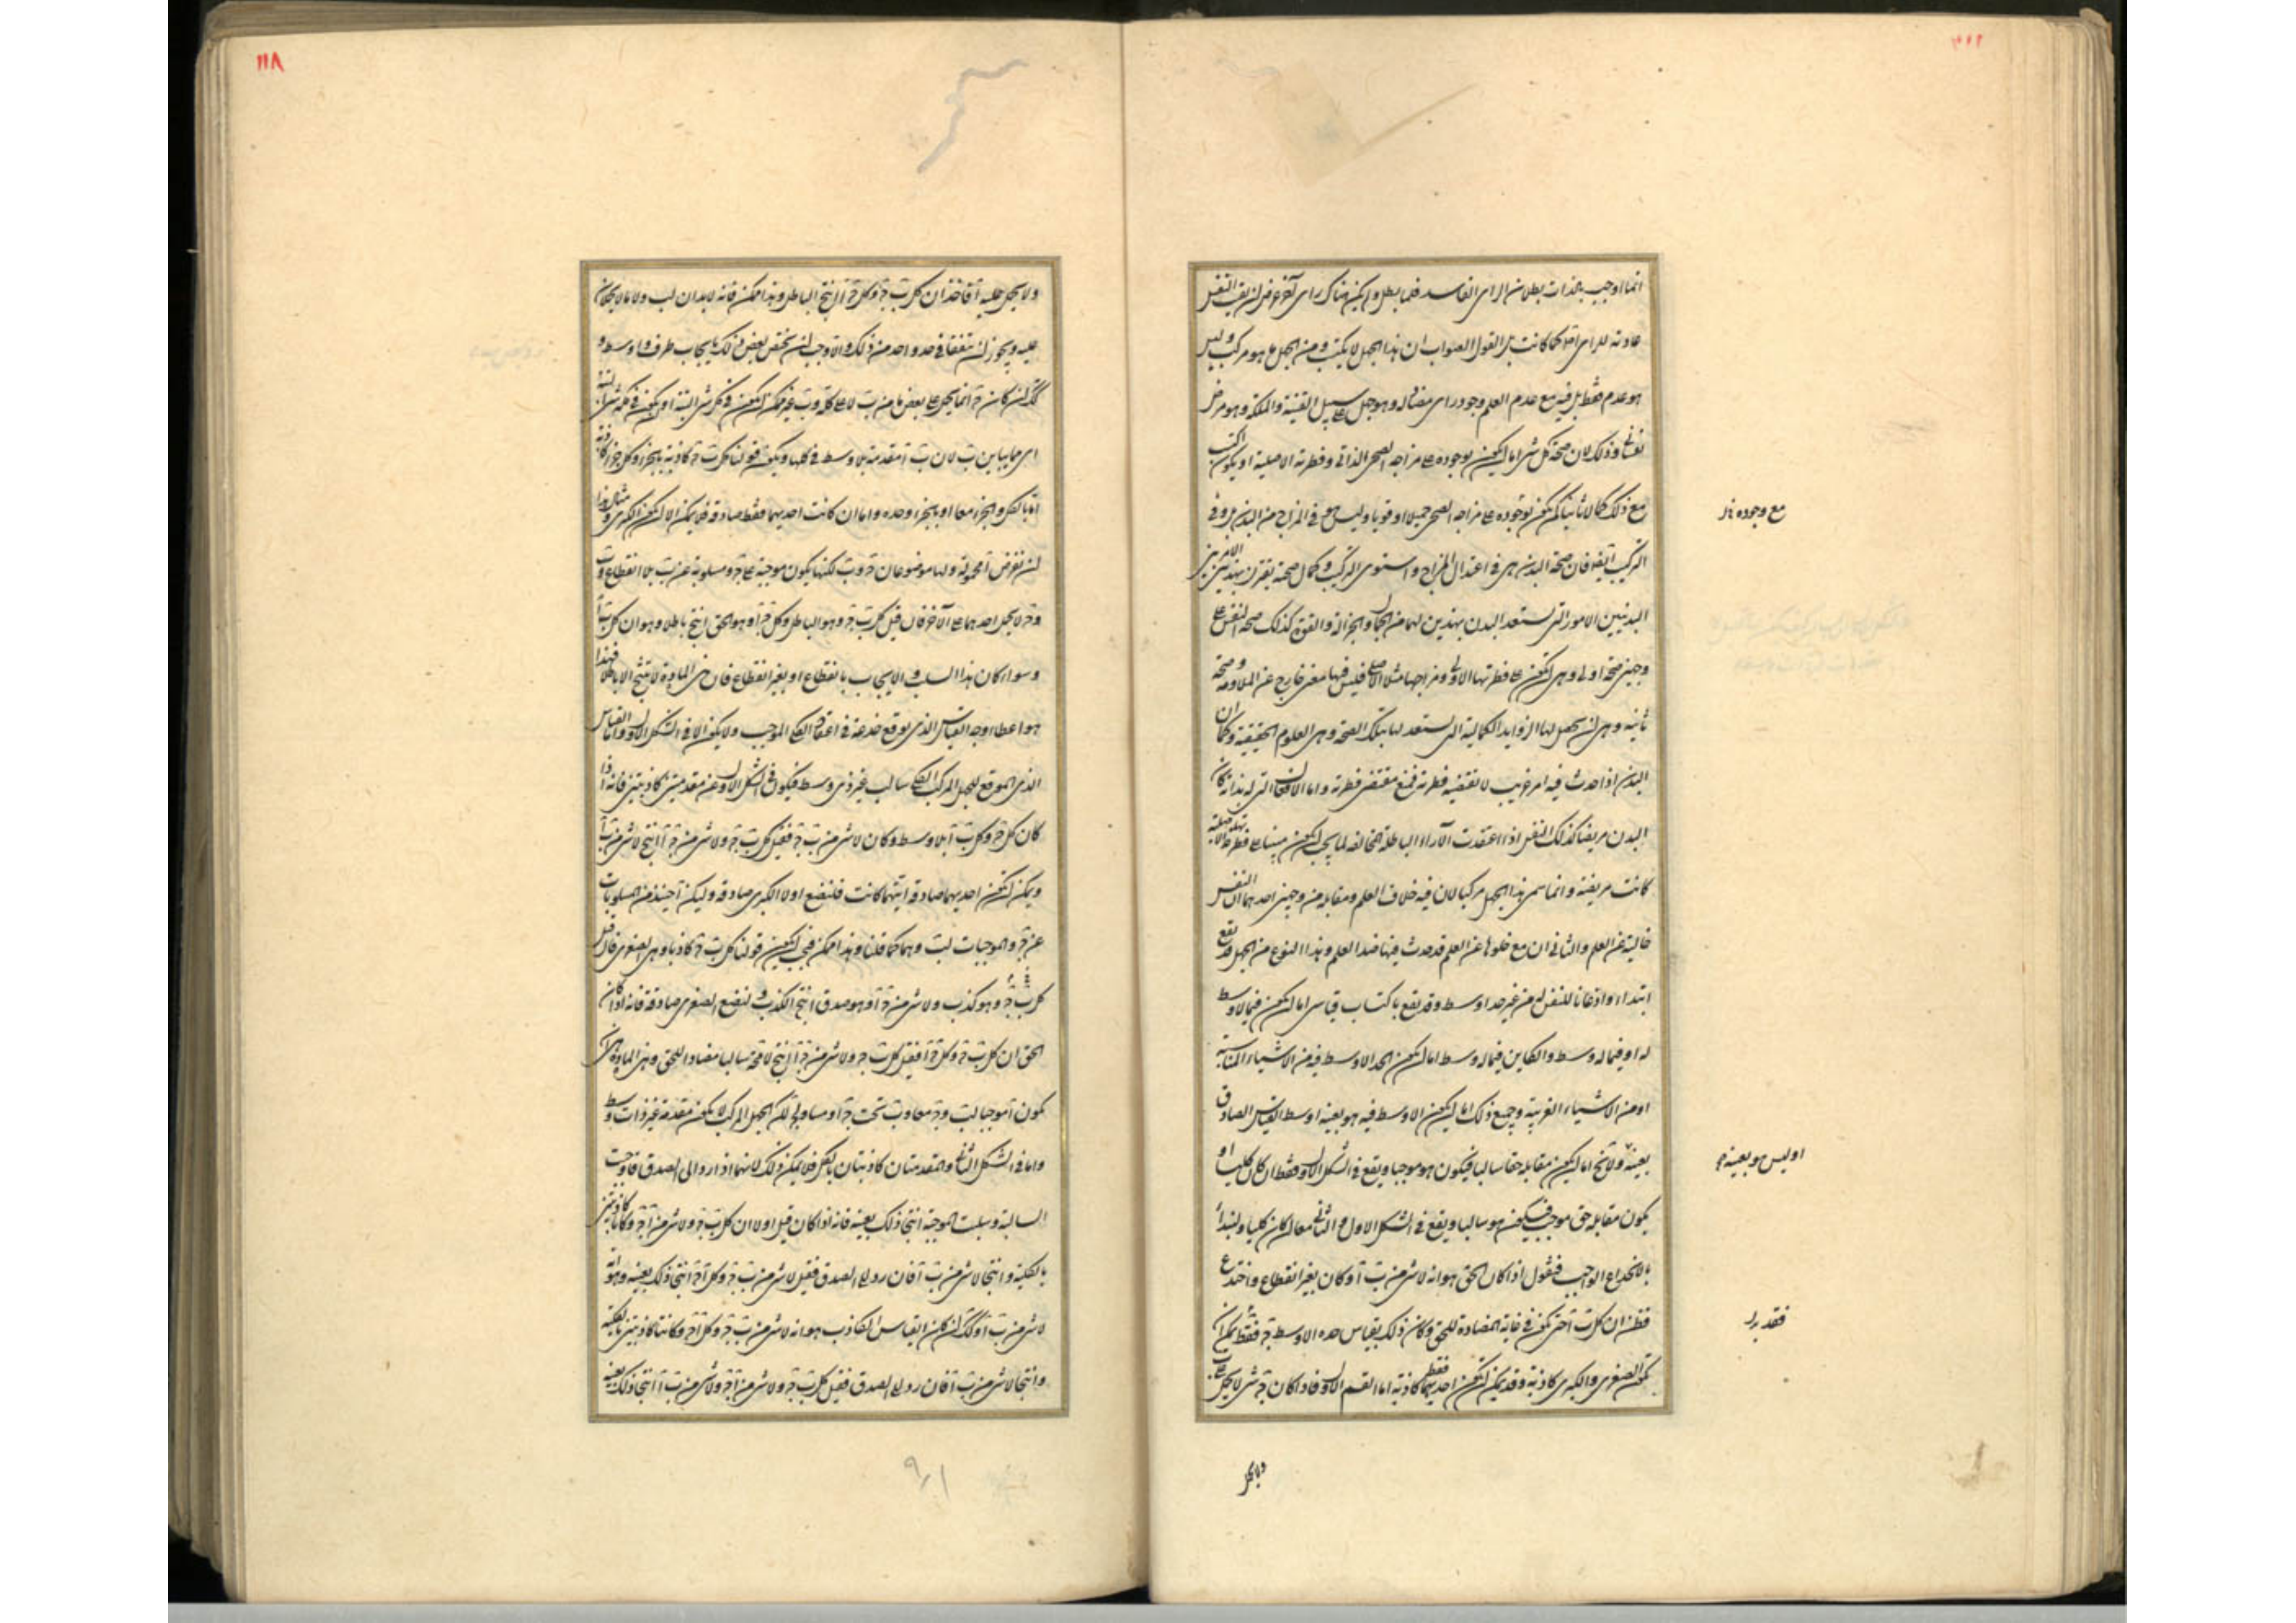 انما اوجب بالذات بطلان الراى الفاسد فلما بطل ولم يكن هناك راى آخر عرض ان بقيت النفس
عادمة للراى اصلا كما كانت بل القول الصواب ان هذا الجهل لا يكتسب ومن الجهل ما هو مركب وليس
هو عدم فقط بل فيه مع عدم العلم وجود راى مضاد له وهو جهل على سبيل القنية والملكة وهو مرض
نفسانى وذلك لان صحة كل شى اما ان يكون بوجوده على مزاجه الصحى الذاتى وفطرته الاصلية او يكون اكتسب
مع ذلك كمالا ثانيا لم يكن بوجوده على مزاجه الصحى جميلا او قويا وليس هو فى المزاج من البدن بل وفى
التركيب ايضا فان صحة البدن هى فى اعتدال المزاج واستوى التركيب وكمال صحته بقترن بهذين الامرين
البدنيين الامور التى يستعد البدن بهذين لهما من الجمال والجزالة والقوة كذلك صحة النفس على
وجهين صحة اولى وهى ان تكون على فطرتها الاولى ومزاجها مثلا الاصلى فليس فيها معنى خارج عن الملاومة وصحة
ثانية وهى ان يحصل لها الزوايد الكمالية التى يستعد لها بتلك الصحة وهى العلوم الحقيقية وكما ان
البدن اذا حدث فيه امر غريب لا تقتضيه فطرته فمنع مقتضى فطرته واما الافعال التى له بذاته كان
البدن مريضا كذلك النفس اذا اعتقدت الآراء الباطلة المخالفة لما يجب ان يكون مبنيا على فطرتها الاصلية
كانت مريضة وانما سمى هذا الجهل مركبا لان فيه خلاف العلم ومقابله من وجهين احدهما ان النفس
خالية عن العلم والثانى ان مع خلوها عن العلم قد حدث فيها ضد العلم وهذا النوع من الجهل قد يقع
ابتداء واذعانا للنفس له من غير حد اوسط وقد يقع باكتساب قياسى اما ان يكون فيما لا وسط
له او فيما له وسط والكاين فيما له وسط اما ان يكون الحد الاوسط فيه من الاشياء المناسبة
او من الاشياء الغريبة وجميع ذلك اما ان يكون الاوسط فيه هو بعينه اوسط القياس الصادق
بعينه ولا يخ اما ان يكون مقابله حقا سالبا فيكون هو موجبا ويقع فى الشكل الاول فقط ان كان كليا او
يكون مقابله حق موجب فيكون هو سالبا ويقع فى الشكل الاول والثانى معا ان كان كليا ولنبدأ
بالانخداع الواجب فنقول اذا كان الحق هو انه لا شى من ب آ وكان بغير انقطاع وانخدع
فظن ان كل ب آ حتى يكون فى غاية المضادة للحق وكان ذلك بقياس حده الاوسط ج فقط يمكن ان
تكون الصغرى والكبرى كاذبة وقد يمكن ان تكون احديهما فقط كاذبة اما القسم الاول فاذا كان ج شى لا يحمل على ب
مع وجوده
او ليس هو بعينه
فقد
ولا يحمل
١١٨
ولا يحمل عليه آ فاخذ ان كل ب ج وكل ج آ انتج الباطل وهذا ممكن فانه لا بد ان لب ولا ما لا يحملان
عليه ويجوز ان يتفقا فى حد واحد من ذلك والا وجب ان يختص بعض ذلك بايجاب طرف واوسط و
كذلك ان كان ج انما يحمل على بعض ما من ب لا على كله وب غير ممكن ان يكون فى كل شى البتة او يكون فى كله شى البتة
اى مباين ب لان ب آ مقدمة بلا وسط فى كلها ويكون قولنا كل ب ج كاذبة بالجزء وكل ج آ كاذبة
اما بالكل والجزء معا او بالجزء وحده واما ان كانت احديهما فقط صادقة فلا يمكن الا ان تكون الكبرى ومثال هذا
ان نفرض آ محمولة ولها موضوعان ج وب لكنها يكون موجبة على ج ومسلوبة عن ب بلا انقطاع وب
وج لا يحمل احدهما على الآخر فان قيل كل ب ج وهو الباطل وكل ج آ وهو الحق انتج باطلا وهو ان كل ب آ
وسواء كان هذا السلب والايجاب بانقطاع او بغير انقطاع فان هذه المادة لا تنتج الا باطلا فهذا
هو اعطاء وجه القياس الذى يوقع خدعة فى اعتقاد الكلى الموجب ولا يكون الا فى الشكل الاول واما القياس
الذى الموقع للجهل المركب الكلى سالب غير ذى وسط فيكون فى الشكل الاول عن مقدمتين كاذبتين فانه اذا
كان كل ج آ وكل ب آ بلا وسط وكان لا شى من ب ج فقيل كل ب ج ولا شى من ج آ انتج لا شى من ب آ
ويمكن ان تكون احديهما صادقة ايتهما كانت فلنضع اولا الكبرى صادقة وليكن آ حينئذ من المسلوبات
عن ج والموجبات لب وهما كما قلنا وهذا ممكن فيجب ان يكون قولنا كل ب ج كاذبا وهى الصغرى فان قيل
كل ب ج وهو كذب ولا شى من ج آ وهو صدق انتج الكذب ولنضع الصغرى صادقة فانه اذا كان
الحق ان كل ب ج وكل ج آ فقيل كل ب ج ولا شى من ج آ انتج لا محة سالبا مضادا للحق وهذه المادة هى ان
يكون آ موجبا لب وج معا وب تحت ج او مساو لج لكن الجهل المركب لا يكون مقدمة غير ذات وسط
واما فى الشكل الثانى والمقدمتان كاذبتان بالكل فلا يمكن ذلك لانهما اذا ردا الى الصدق فاوجبت
السالبة وسلبت الموجبة انتجا ذلك بعينه فانه اذا كان قيل اولا ان كل ب ج ولا شى من آ ج وكانا كاذبتين
بالكلية وانتجا لا شى من ب آ فان رد الى الصدق فقيل لا شى من ب ج وكل آ ج انتجا ذلك بعينه وهو انه
لا شى من ب آ وكذلك ان كان القياس الكاذب هو انه لا شى من ب ج وكل آ ج وكانتا كاذبتين بالكلية
وانتجا لا شى من ب آ فان رد الى الصدق فقيل كل ب ج ولا شى من آ ج ولا شى من ب آ انتجا ذلك بعينه